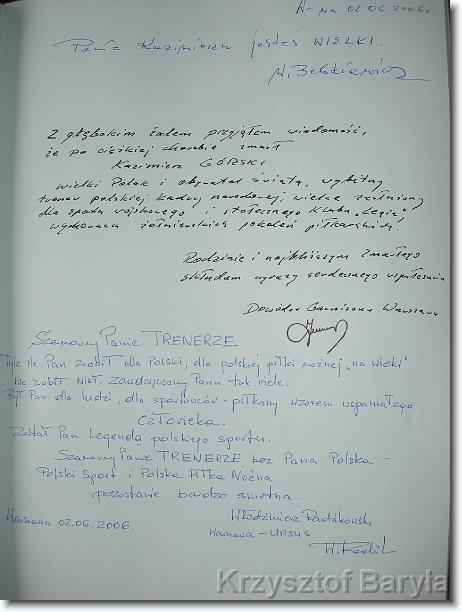 W-wa 02.06.2006r.
Panie Kazimierzu jesteś WIELKI.
Z głębokim żalem przyjąłem wiadomość,
że po ciężkiej chorobie zmarł
Kazimierz GÓRSKI
Wielki Polak i obywatel świata, wybitny
trener polskiej kadry narodowej, wielce zasłużony
dla sportu wojskowego i stołecznego klubu „Legia”
wychowawca żołnierskich pokoleń piłkarskich!
Rodzinie i najbliższym Zmarłego
składam wyrazy serdecznego współczucia
Dowódca Garnizonu Warszawa
Szanowny Panie TRENERZE
Tyle ile Pan zrobił dla Polski, dla polskiej piłki nożnej „na wieki”
nie zrobił nikt. Zawdzięczamy Panu tak wiele.
Był Pan dla ludzi, dla sportowców - piłkarzy wzorem wspaniałego
CZŁOWIEKA.
Został Pan Legendą polskiego sportu.
Szanowny Panie TRENERZE bez Pana Polska -
Polski Sport i Polska Piłka Nożna
pozostanie bardzo smutna.
Włodzimierz Radzikowski
Warszawa 02.06.2006.
Warszawa - URSUS
Krzysztof Baryła